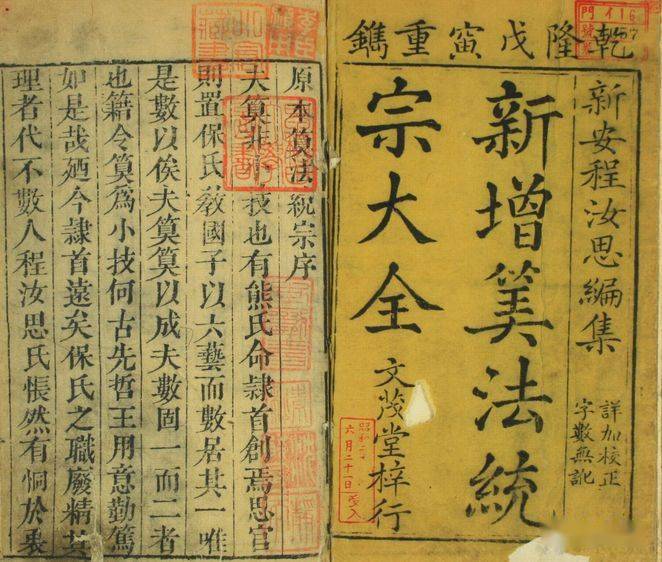 乾隆戊寅重鐫
新安程汝思編集
詳加校正
字數無訛
新增筭法統
宗大全
文茂堂梓行
昭和
六月二十日
原本筭法統宗序
夫筭非技也有熊氏命隸首創焉思官
則置保氏教國子以六藝而數居其一唯
是數以俟夫筭筭以成夫數固一而二者
也籍令筭為小技何古先哲王用意勤篤
如是哉廼今隸首遠矣保氏之職廢精其
理者代不數人程汝思氏悵然有恫於衷